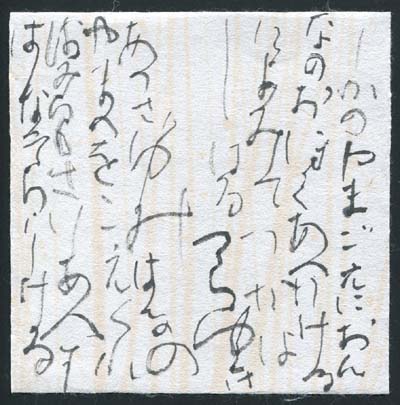 しかのやまごえにおん
なのおほくあへりける
によみてつかは
しける つらゆき
あづさゆみはるの
やまべをこえくれば
みちもさりあへず
はなぞちりける